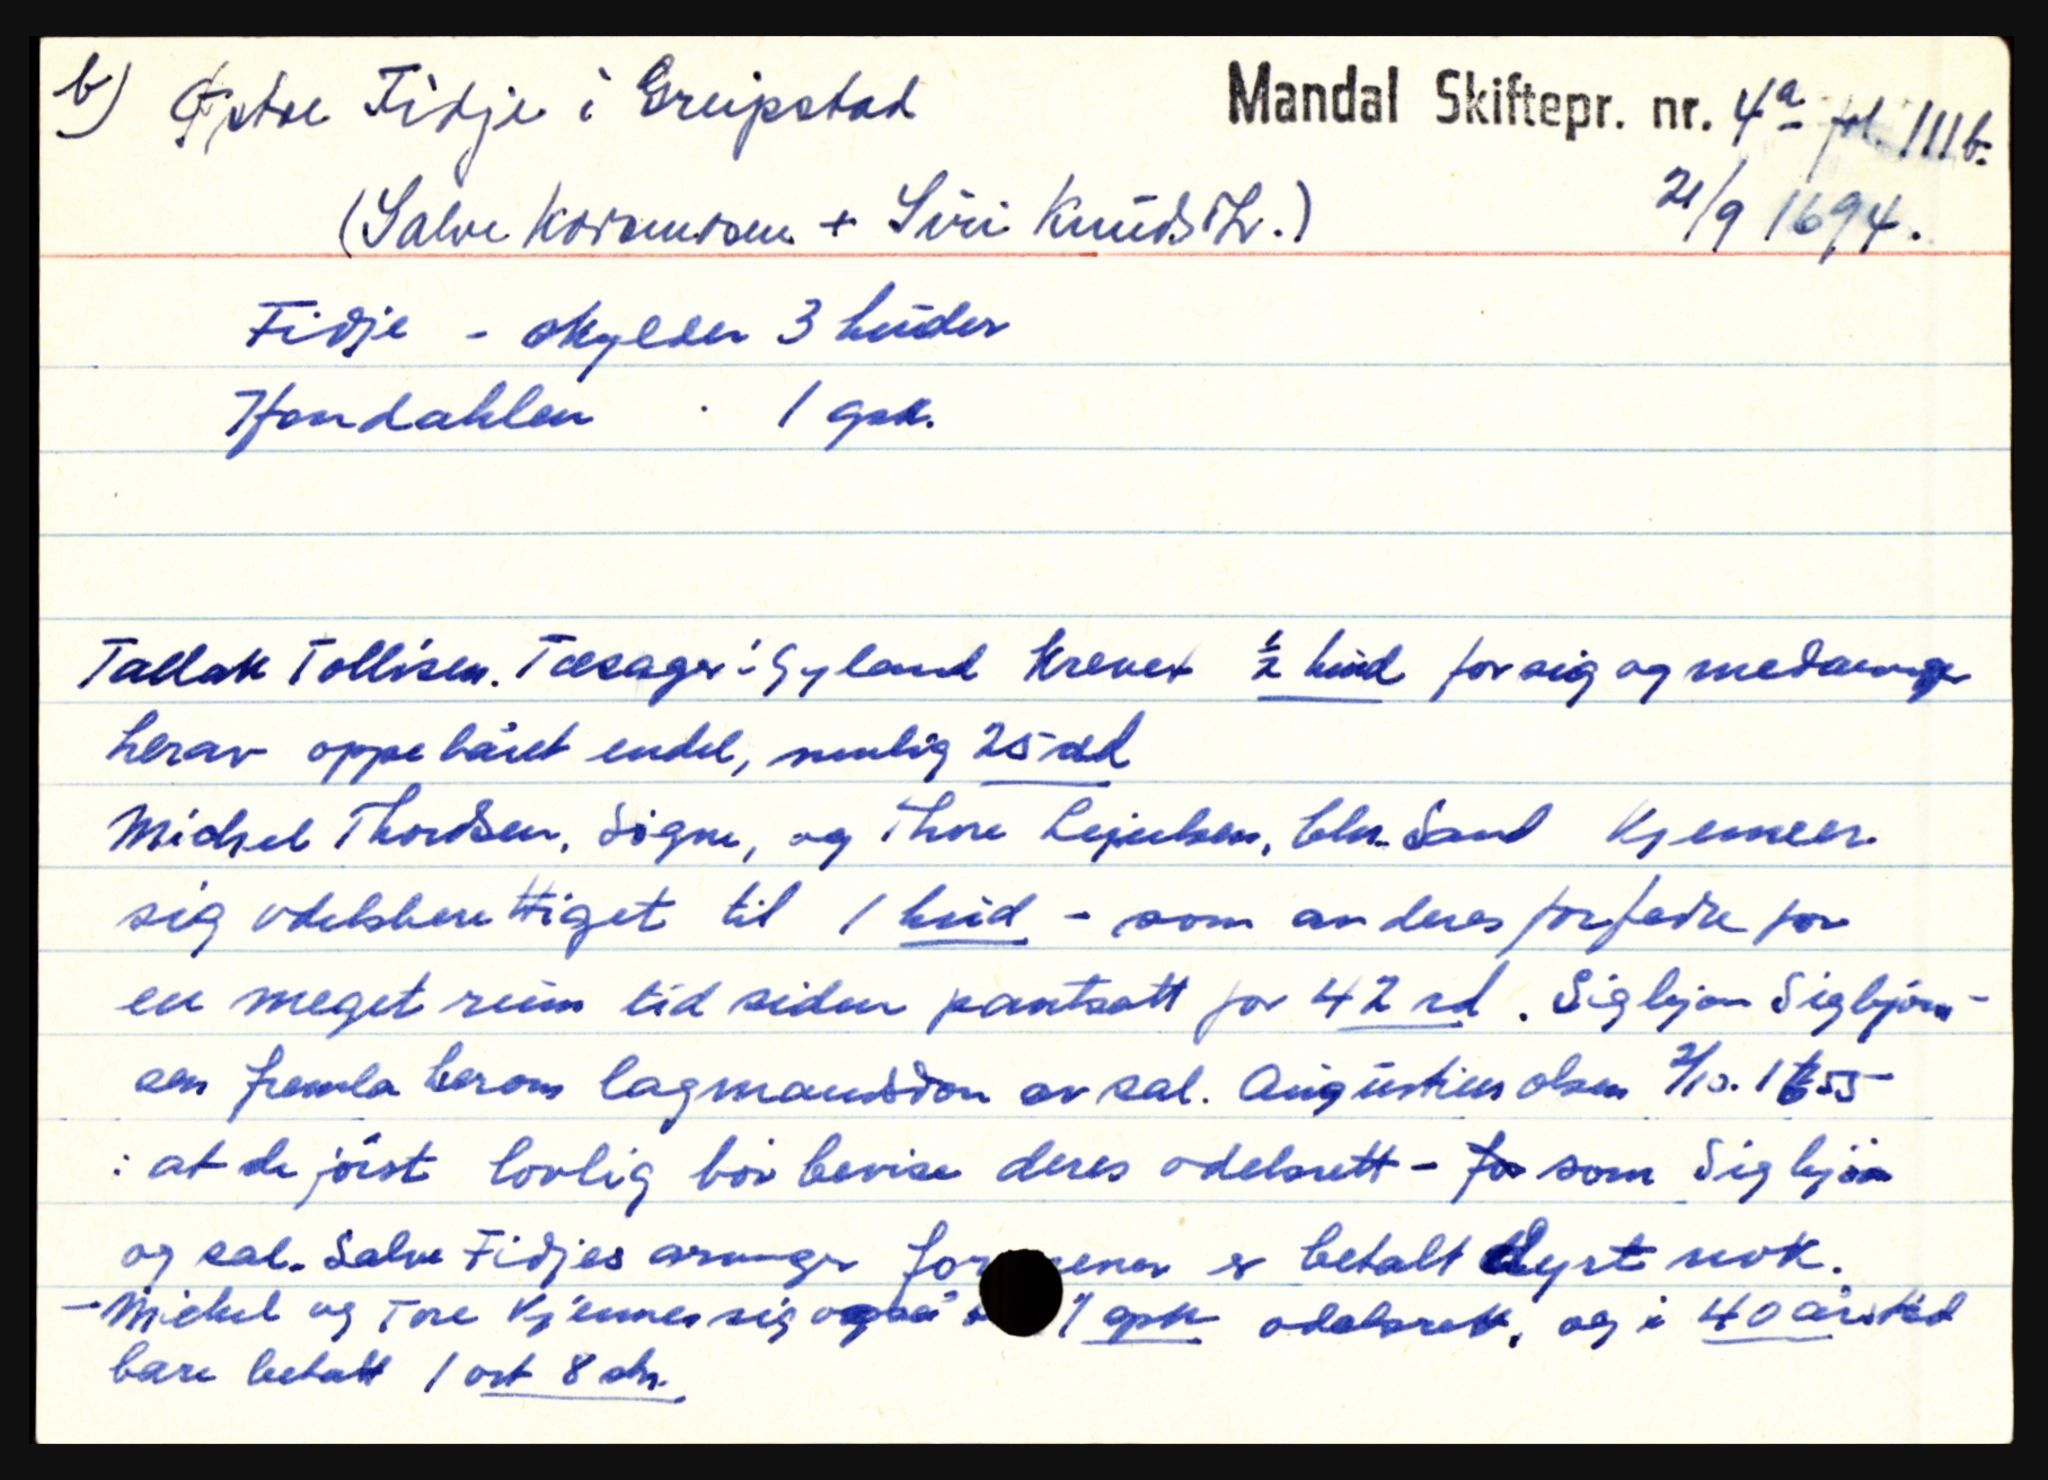 b) Østre Fidje i Greipstad Mandal Skiftepr. nr. 4a fol. 111b.
(Salve + Siri Knudsdtr.) 21/9 1694.
Fidje - skylder 3 huder
1 gsk.
Tallak Tollisen. i Gyland krever ½ hud for sig og medarvinger
herav oppebåret endel, nemlig 25 rd
Michel Thordsen, Søgne, og Thore Sand kjenner
sig odelsberettiget til 1 hud - som av deres forfedre for
en meget rum tid siden pantsatt for 42 rd. Sigbjørn Sigbjørn-
sen fremla herom lagmandsdom av sal. Augustinus Olsen 2/10. 1655
: at de først lovlig bør bevise deres odelsrett - for som Sigbjørn
og sal. Salve Fidjes arvinger formener er betalt dyrt nok.
- Michel og Tore kjennes sig også 1 gsk odelsrett, og i 40 års tid
bare betalt 1 ort 8 sk.